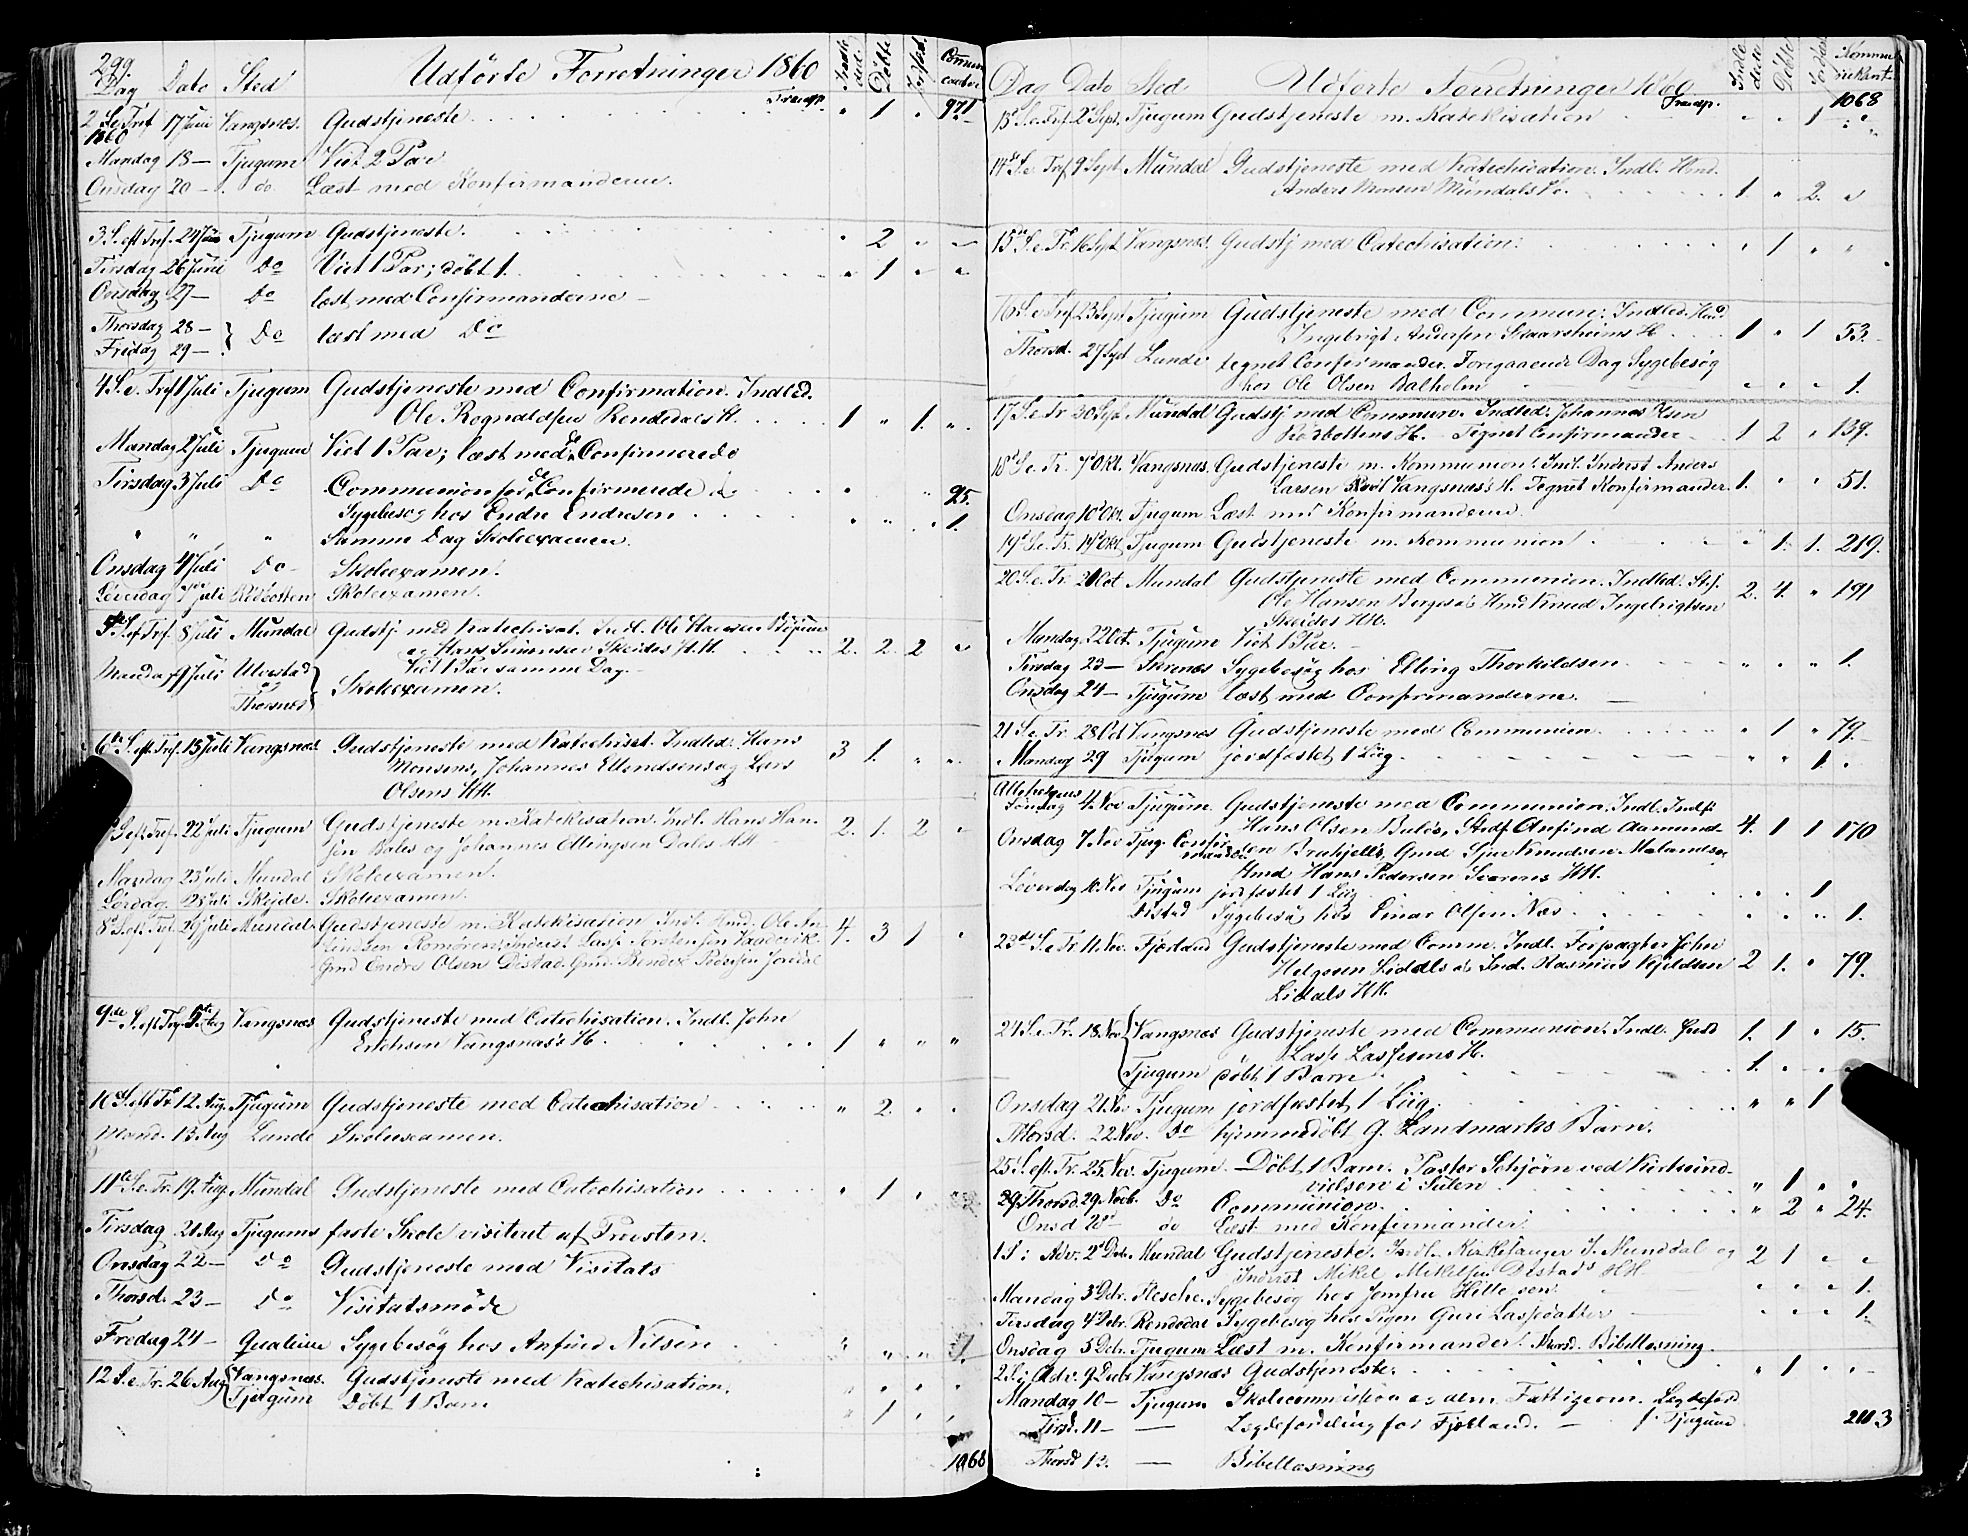 299
Dag Dato Sted Udførte Forretninger 1860 Døbte Jordfæst. Commu
Transp. 971
2 S. e. Tref 17 Juni Vangsnæs. Gudstjeneste " 1 "
1860
Mandag 18 — Tjugum Viet 2 Par
Onsdag 20 — do. Læst med Konfirmanderne.
3 S. eft Tref. 24 Juni Tjugum Gudstjeneste. " 2 " "
Tirsdag 26 Juni Do Viet 1 Par; døbt 1. " 1 " "
Onsdag 27 — Do læst med Confirmanderne —
Thorsdag 28 — Do læst med Do
Fredag 29 —
4 S. e. Tref 1 Juli Tjugum Gudstjeneste med Confirmation. Indled.
Ole Rognaldsen Rendedals H. 1 " 1. "
Mandag 2 Juli Tjugum Viet 1 Par; læst med de Confirmerede
Tirsdag 3 Juli Do Communion for de Confirmerede 95.
Sygebesøg hos Endre Endresen 1.
" " " Samme Dag Skoleexamen.
Onsdag 4 Juli Do Skoleexamen.
Løverdag 7 Juli Rødbotten Skoleexamen.
5te S. ef. Tref. 8 Juli Mundal Gudstj. med Katechisat. Indl. Ole Hansen Bøjum
og Hans Simonsen Skeides HH. 2. 2. 2 "
Viet 1 Par samme Dag.
Mandag 9 Juli Ulvestad
og Skoleexamen.
Thorsnes
6te S. eft. Tref. 15 Juli Vangsnæs Gudstjeneste med Katechisat. Indled. Hans 3 1. " "
Monsens, Johannes Ellendsens og Lars
Olsens HH.
S. eft. Tref. 22 Juli Tjugum Gudstjeneste m. Katekisation. Indl. Hans Han- 2. 1. 2 "
sen Bales og Johannes Ellingsen Dales HH
Mandag 23 Juli Mundal Skoleexamen.
Lørdag 28 Juli Skejde. Skoleexamen.
8d S. eft. Tref. 29 Juli Mundal Gudstjeneste m. Katekisation Indl. Hmd. Ole 4. 3 1 "
Romøren; Inderst Lasse Torstensen
Gmd Endre Olsen Distad. Gmd. Bendix Pedersen Jordal
9de S. eft Tref. 5te Aug Vangsnæs Gudstjeneste med Catechisation. Indl. John
Erichsen Vangsnæs's H. 1 " " "
10d S. eft Tr. 12. Aug. Tjugum Gudstjeneste med Catechisation " 2. " "
Mand. 13 Aug Lunde Skoleexamen.
11te S. e. Tr. 19. Aug. Mundal Gudstjeneste med Catechisation " 1 "
Tirsdag 21 Aug Tjugums faste Skole visiteret af Provsten.
Onsdag 22 — Do Gudstjeneste med Visitats
Thorsd. 23 — Do Visitatsmøde
Fredag 24 — Sygebesøg hos Anfind Nilsen " " " 1.
12 S. e. Tr. 26 Aug Vangsnæs. Gudstjeneste med Katechisation. " " " "
Tjugum Døbt 1 Barn " 1 " "
1068
Dag Dato Sted Udførte Forretninger 1860 Indle dede Døbte Kommu nikant.
Transp. 1068
13d S. e. Tref. 2d Sept. Tjugum Gudstjeneste m. Katekisation " " 1 "
14d S. e. Tref 9 Sept Mundal Gudstjeneste med Katechisation. Indl. Hmd.
Anders Monsen Mundals H. 1 " 2. "
15de S. e. Tr. 16 Sept Vangsnæs. Gudstj med Catechisation. " 1 " "
16 S. e. Tref 23 Sept Tjugum Gudstjeneste med Commun. Indled. Hmd.
Ingebrigt Andersen Skaarsheims H. 1 " 1 53.
Thorsd. 27 Sept Lunde tegnet Confirmander. Foregaaende Dag Sygebesøg
hos Ole Olsen Balholm " " " 1.
17 S. e. Tr 30 Sept Mundal Gudstj med Commun. Indled. Johannes Olsen
Rødbottens H. — Tegnet Confirmander 1 2 " 139.
18d S. e. Tr. 7d Okt. Vangsnæs. Gudstjeneste m. Kommunion. Indl. Inderst Anders
Larsen Vangsnæs's H. Tegnet Konfirmander. 1. " " 51.
Onsdag 10d Okt. Tjugum Læst med Konfirmanderne.
19d S. e. Tr. 14d Okt Tjugum Gudstjeneste m. Kommunion " 1. 1. 219.
20 S. e. Tr. 21 Oct Mundal Gudstjeneste med Communion. Indled. 2. 4. " 191
Ole Hansen Berges's Hmd Knud Ingebrigtsen
Skeides HH.
Mandag 22 Oct. Tjugum Viet 1 Par. —
Tirsdag 23 — Sygebesøg hos Elling Thorkildsen " " " 1.
Onsdag 24 — Tjugum læst med Confirmanderne.
21 S. e. Tr. 28 Oct Vangsnæs Gudstjeneste med Communion " 1 " 79.
Mandag 29 Tjugum jordfæstet 1 Liig " " 1. "
Allehelgens
Søndag 4. Nov Tjugum Gudstjeneste med Communion. Indl. Indst
Hans Olsen Bales, Anfind Aamund- 4. 1 1 170
Onsdag 7 Nov Tjug. Confir- sen Gmd Sjur Knudsen
mander
Hmd Hans Pedersen HH.
Løverdag 10. Nov Tjugum jordfæstet 1 Liig " " 1
Distad Sygebesøg hos Einar Olsen Næs. " " " 1.
23de S. e. Tr 11. Nov. Fjærland Gudstjeneste med Comm. Indl. Forpagter John
Helgesen Liddls's, Ind. Rasmus Kjeldsen 2 1. " 79.
Lidals HH.
24 S. e. Tr. 18. Nov. Vangsnæs Gudstjeneste med Communion. Indl. 1. 1 " 15.
Lasse Lassesens H.
Tjugum døbt 1 Barn 1. " "
Onsdag 21. Nov Tjugum jordfæstet 1 Liig " " 1
Thorsd. 22 Nov. Do hjemmedøbt G. Landmarks Barn.
25 S. eft. Tr. 25. Nov. Tjugum. — Døbt 1 Barn. Pastor Schjørn ved Kirkeind-
vielsen i Sulen " 1 " "
Thorsd. 29 Novb. Do Communion " 2 " 24.
Onsd 28d do Læst med Konfirmander.
1 S. i Adv. 2d Decb. Mundal Gudstjeneste. Indl. Kirkesanger J. Munddal og 2 1 " "
Inderst Mikel Mikelsen Distads HH.
Mandag 3d Decbr. Flesche Sygebesøg hos Jomfru " " " 1.
Tirsdag 4d Decbr. Rendedal Sygebesøg hos Pigen Guri Lassedatter " " " 1.
Onsdag 5 Decbr. Tjugum Læst m. Konfirmander. Thorsd. Bibellæsning.
2 S. i Adv. 9 Decbr Vangsnæs Gudstjeneste. " 1 " "
Mandag 10 — Tjugum Skolecommission og dern. Fattigcom. Lægdeford
Tirsd. 11 — — Lægdefordeling for Fjærland. — f. Tjugum 2113
Thorsd 13. — Bibellæsning